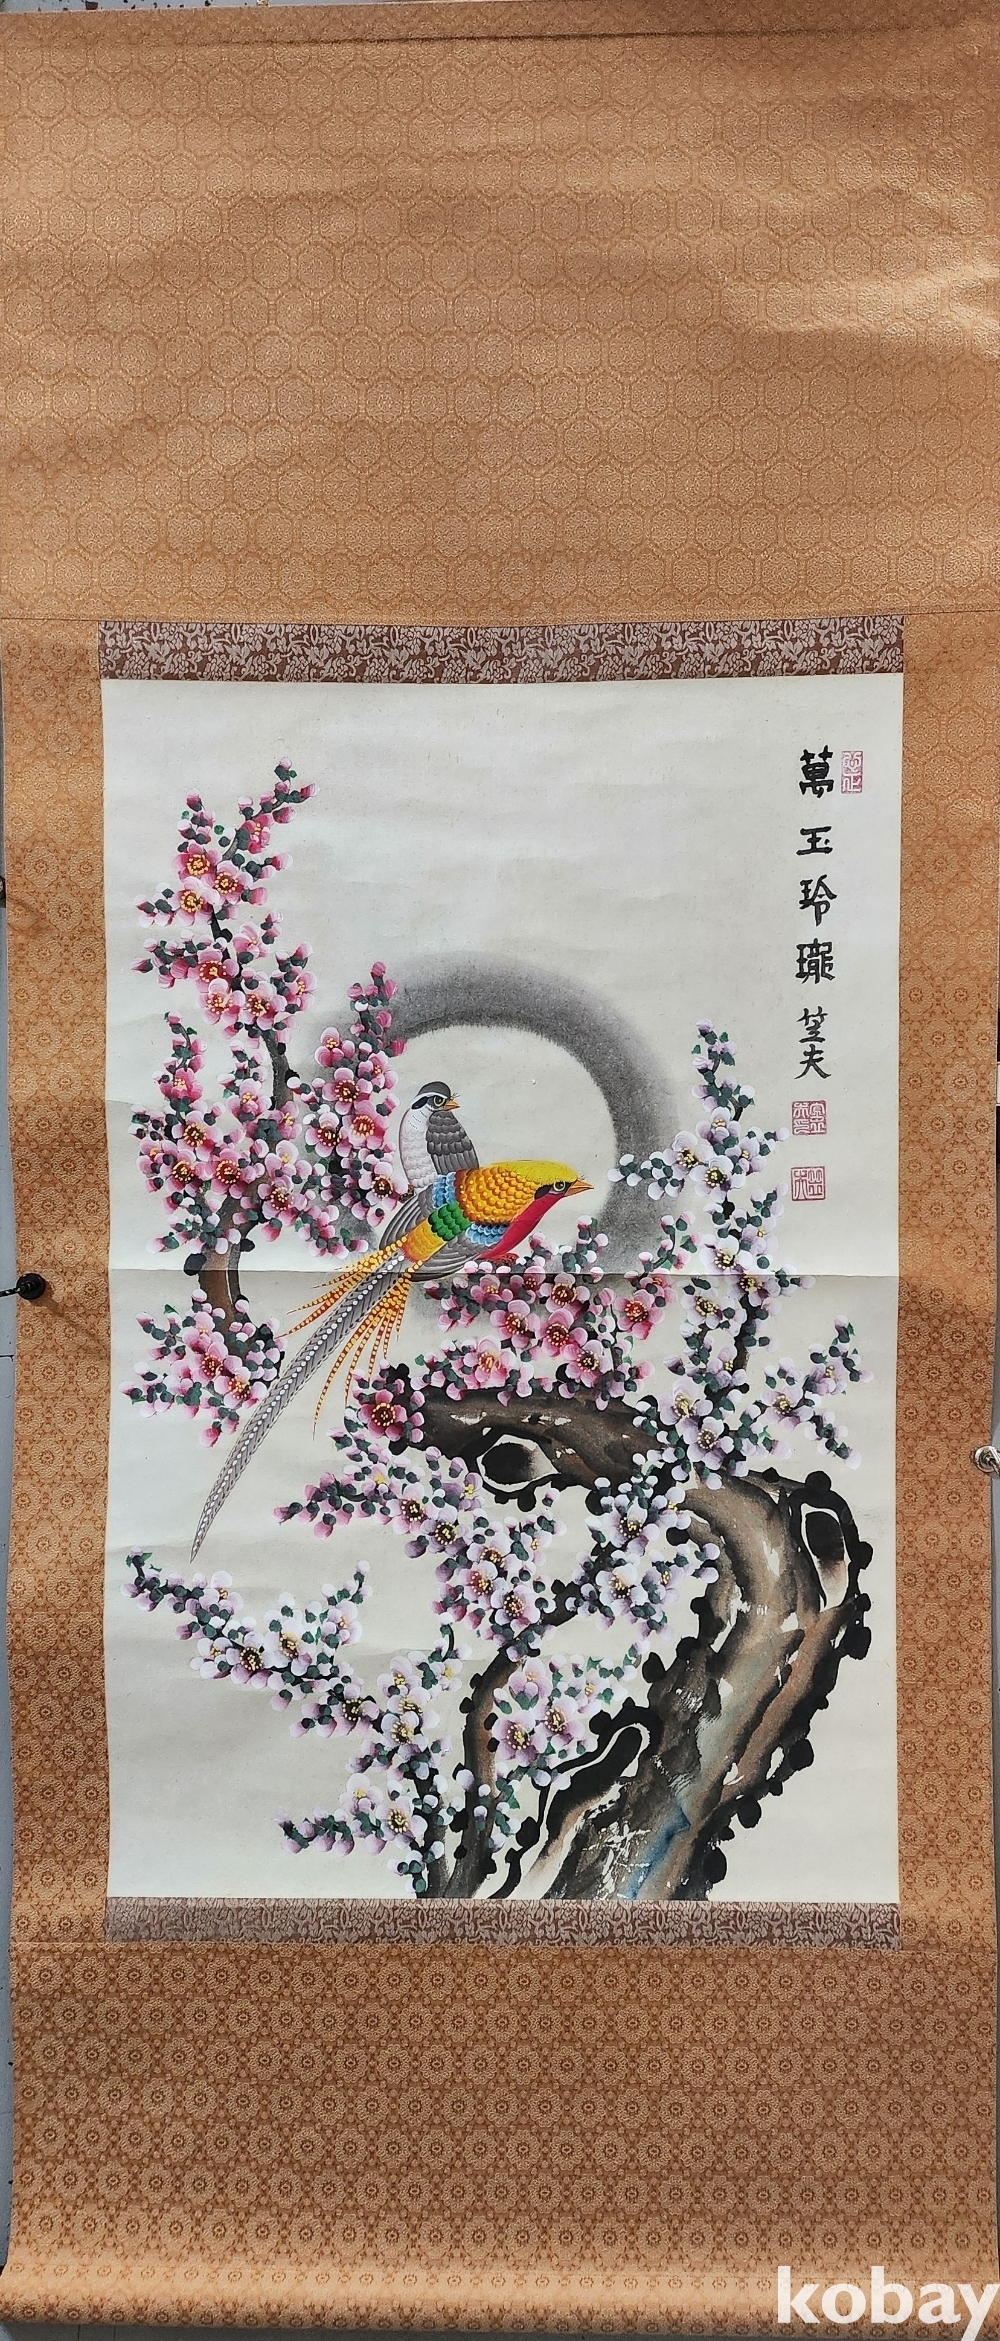 萬玉玲瓏 笠夫
kobay